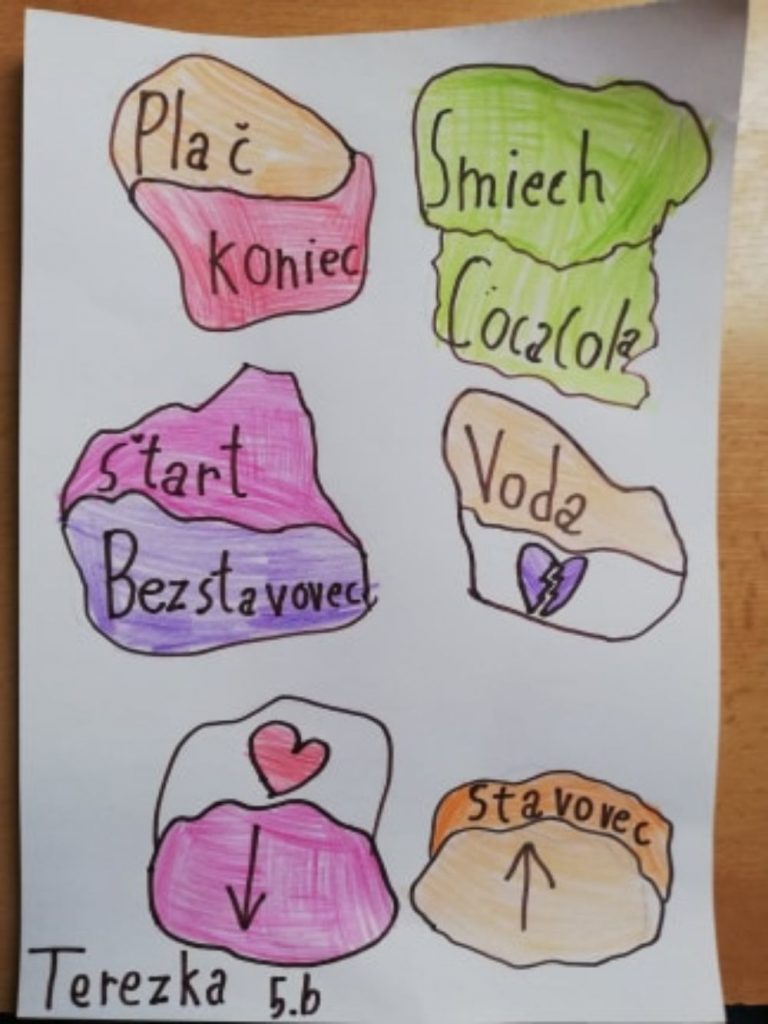 Plač
Koniec
Smiech
CocaCola
štart
Bezstavovec
Voda
stavovec
Terezka 5.b